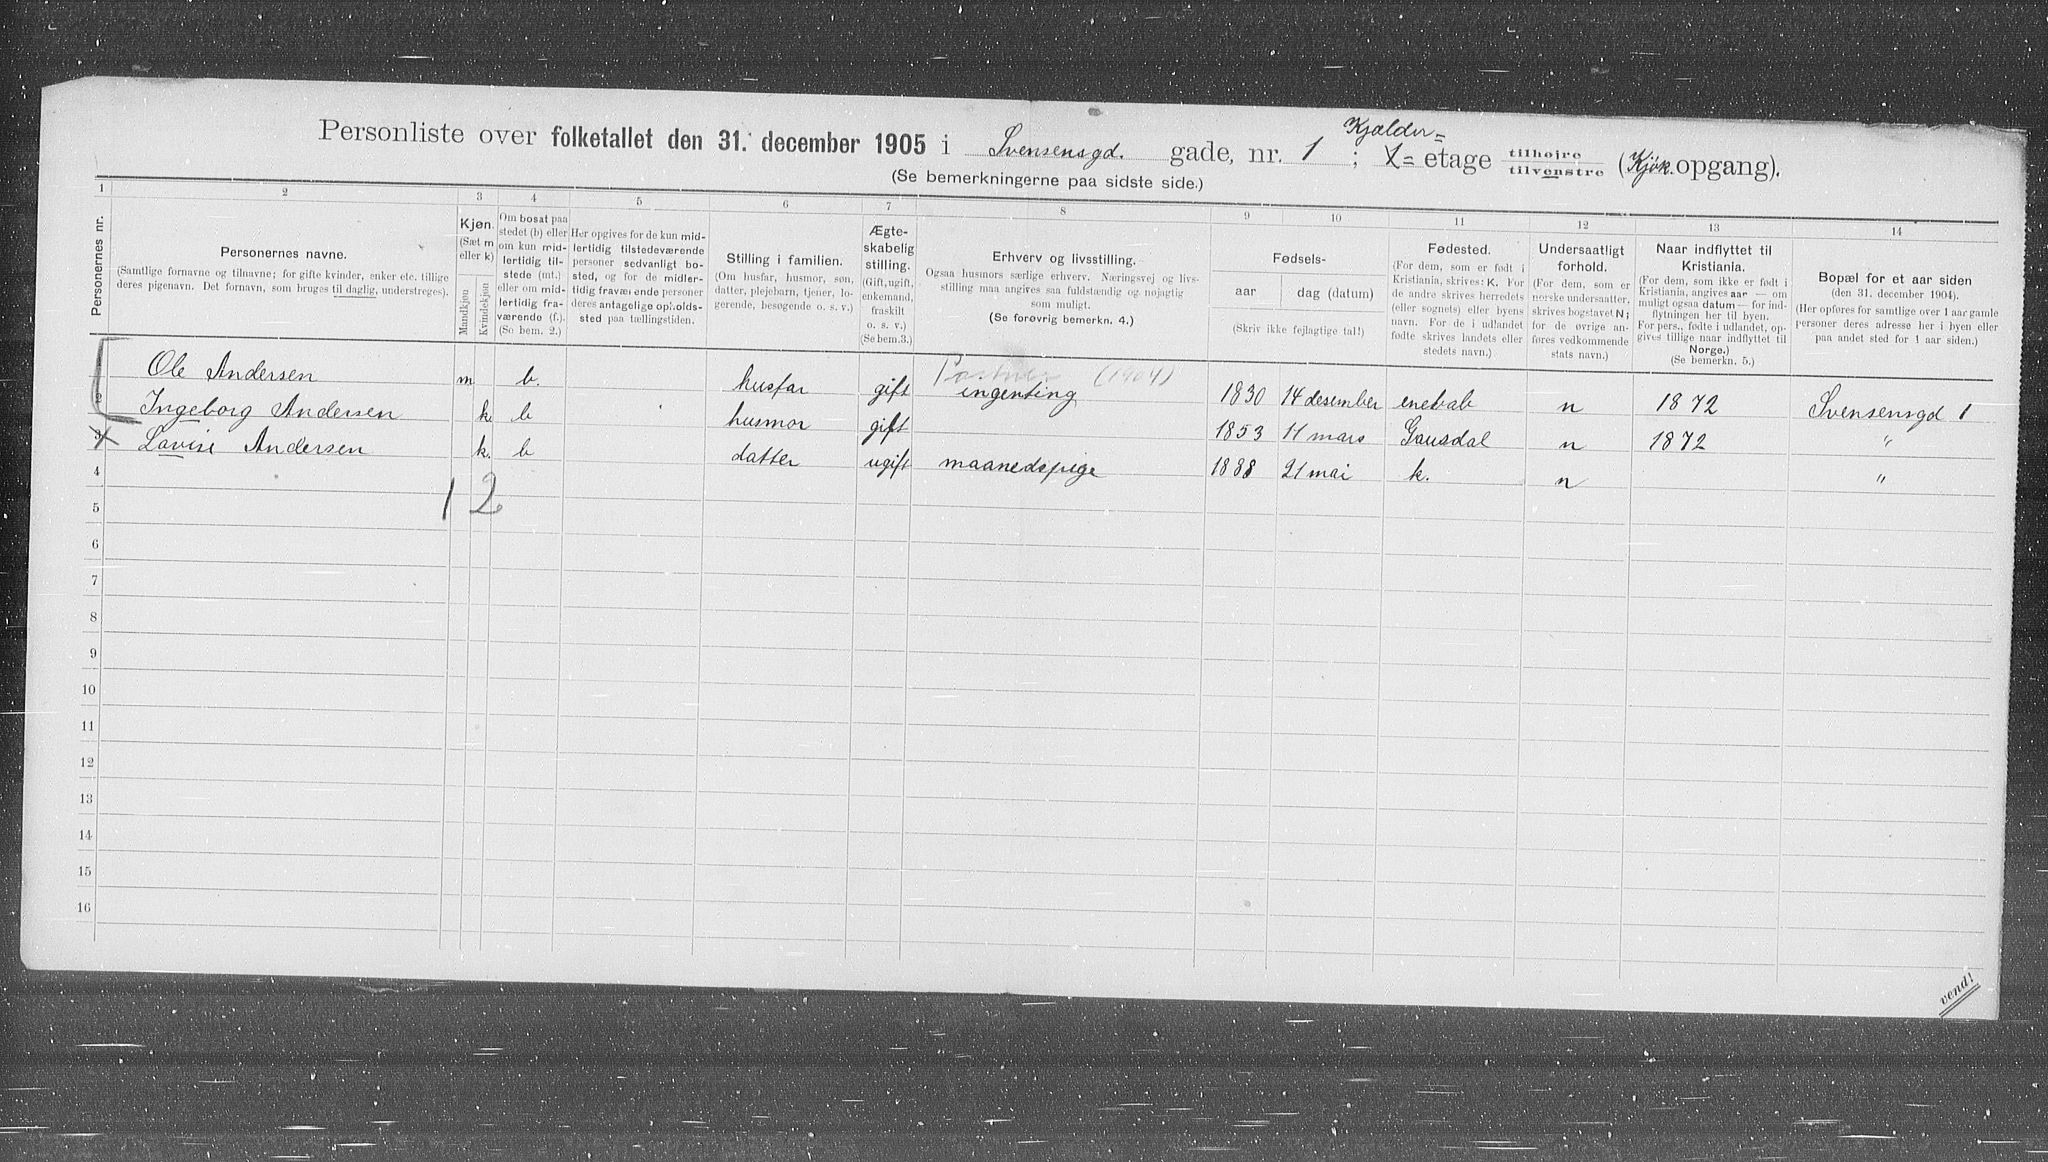 Personliste over folketallet den 31. december 1905 i Svensensgd. gade, nr. 1 ; Kjælder= 1= etage tilhøjre tilvenstre (Kjøk.opgang).
(Se bemerkningerne paa sidste side.)
1 2 3 4 5 6 7 8 9 10 11 12 13 14
Personernes nr.
Personernes navne.
(Samtlige fornavne og tilnavne; for gifte kvinder, enker etc. tillige
deres pigenavn. Det fornavn, som bruges til daglig, understreges).
Kjøn.
(Sæt m
eller k)
Mandkjøn
Kvindekjøn
Om bosat paa
stedet (b) eller
om kun mid-
lertidig til-
stede (mt.)
eller om mid-
lertidig fra-
værende (f.).
(Se bem. 2.)
Her opgives for de kun mid-
lertidig tilstedeværende
personer sedvanligt bo-
sted, og for de midler-
tidig fraværende personer
deres antagelige opholds-
sted paa tællingstiden.
Stilling i familien.
(Om husfar, husmor, søn,
datter, plejebarn, tjener, lo-
gerende, besøgende o. s. v.)
Ægte-
skabelig
stilling.
(Gift, ugift,
enkemand,
fraskilt
o. s. v.)
(Se bem.3.)
Erhverv og livsstilling.
Ogsaa husmors særlige erhverv. Næringsvej og livs-
stilling maa angives saa fuldstændig og nøjagtig
som muligt.
(Se forøvrig bemerkn. 4.)
Fødsels-
aar
dag (datum)
(Skriv ikke fejlagtige tal!)
Fødested.
(For dem, som er født i
Kristiania, skrives: K. For
de andre skrives herredets
(eller sognets) eller byens
navn. For de i udlandet
fødte skrives landets eller
stedets navn.)
Undersaatligt
forhold.
(For dem, som er
norske undersaatter,
skrives bogstavet N;
for de øvrige an-
føres vedkommende
stats navn.)
Naar indflyttet til
Kristiania.
(For dem, som ikke er født i
Kristiania, angives aar — om
muligt ogsaa datum — for ind-
flytningen her til byen.
For pers., fødte i udlandet, op-
gives tillige naar indflyttet til
Norge.)
(Se bemerkn. 5.)
Bopæl for et aar siden
(den 31. december 1904).
(Her opføres for samtlige over 1 aar gamle
personer deres adresse her i byen eller
paa andet sted for 1 aar siden.)
(1904)
Ole Andersen m b. husfar gift ingenting 1830 14 desember enebab n 1872 Svensensgd 1
2 Ingeborg Andersen k. b husmor gift 1853 11 mars Gausdal n 1872 "
3 Lovise Andersen k. b datter ugift maanedspige 1888 21 mai k. n "
4
1 2
5
6
7
8
9
10
11
12
13
14
15
16
vend!